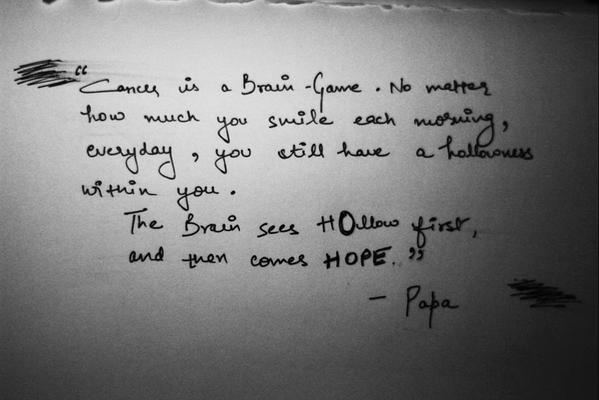 “Cancer is a Brain-Game. No matter
how much you smile each morning,
everyday, you still have a hollowness
within you.
The Brain sees HOllow first,
and then comes HOPE.”
- Papa